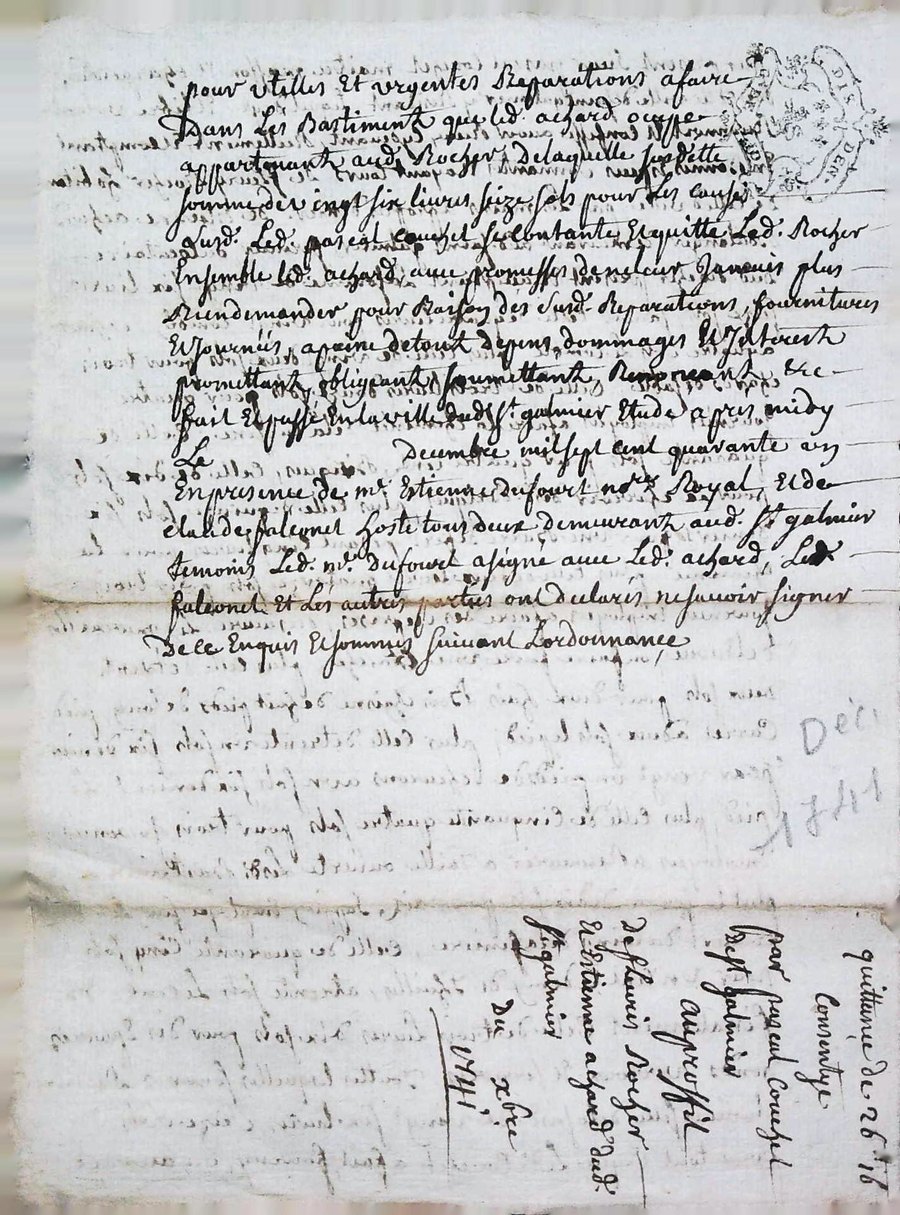 pour utilles Et urgentes Reparations afaire
Dans Les Bastiment que led. achard occupe
appartenant aud. Rocher, Delaquelle susdette
somme de vingt six livres seize sols pour Les causes
susd. Led. pascal couchet se contante Et quitte Led. Rocher
Ensemble led. achard, avec promesses de ne leur Jamais plus
Rien demander pour Raison des susd. Reparations, fournitures
Et Journées, apaine de tout depens, dommages Et Interest
promettant, obligeant, soumettant, Renonceant &c
fait Et passé En la ville dud. St. galmier Etude apres midy
Le Decembre mil sept cent quarante un
En presence de me. Estienne dufourt nore. Royal, Et de
claude falconet hoste tous deux demeurant aud. St galmier
temoins Led. me. Dufourt a signé avec Led. achard, Led.
falconet Et Les autres parties ont declarés ne savoir signer
De ce Enquis Et sommés suivant Lordonnance
Déc
1741
quittance de 26 16
Consentye
par pascal Couchet
De St galmier
au proffit
De fleuris Rocher
Et Estienne achard dud.
St galmier
Du xbre
1741